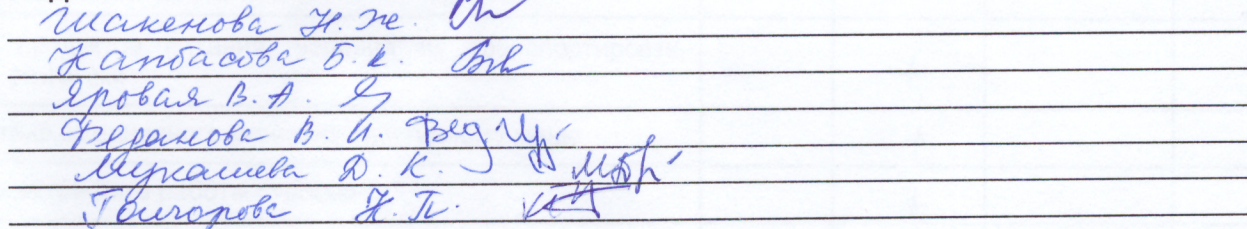 Шакенова Н.Ж.
Жанбасова Б.К.
Яровая В.А.
Феданова В.И.
Мукашева Д.К.
Гончарова Н.П.